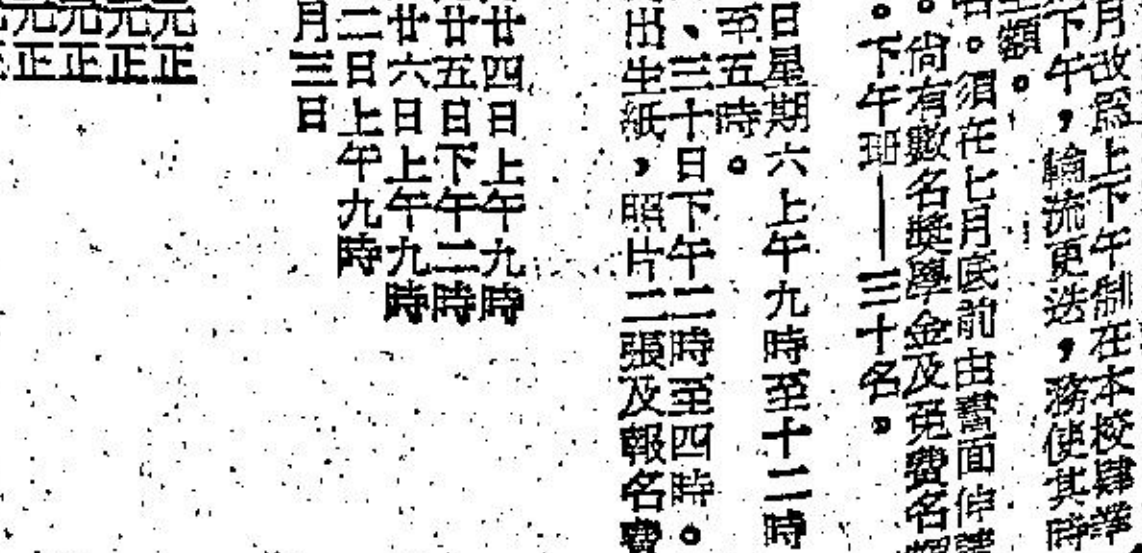 月改爲上下午制在本校肄業
下午，輪流更迭，務使其時
額。
。須在七月底前由書面伸請
。尚有數名獎學金及免費名額
。下午班——三十名。
日星期六上午九時至十二時
至五時。
、三十日下午二時至四時。
出生紙，照片二張及報名費
廿四日上午九時
廿五日下午二時
廿六日上午九時
二日上午九時
月三日
元正
元正
元正
元正